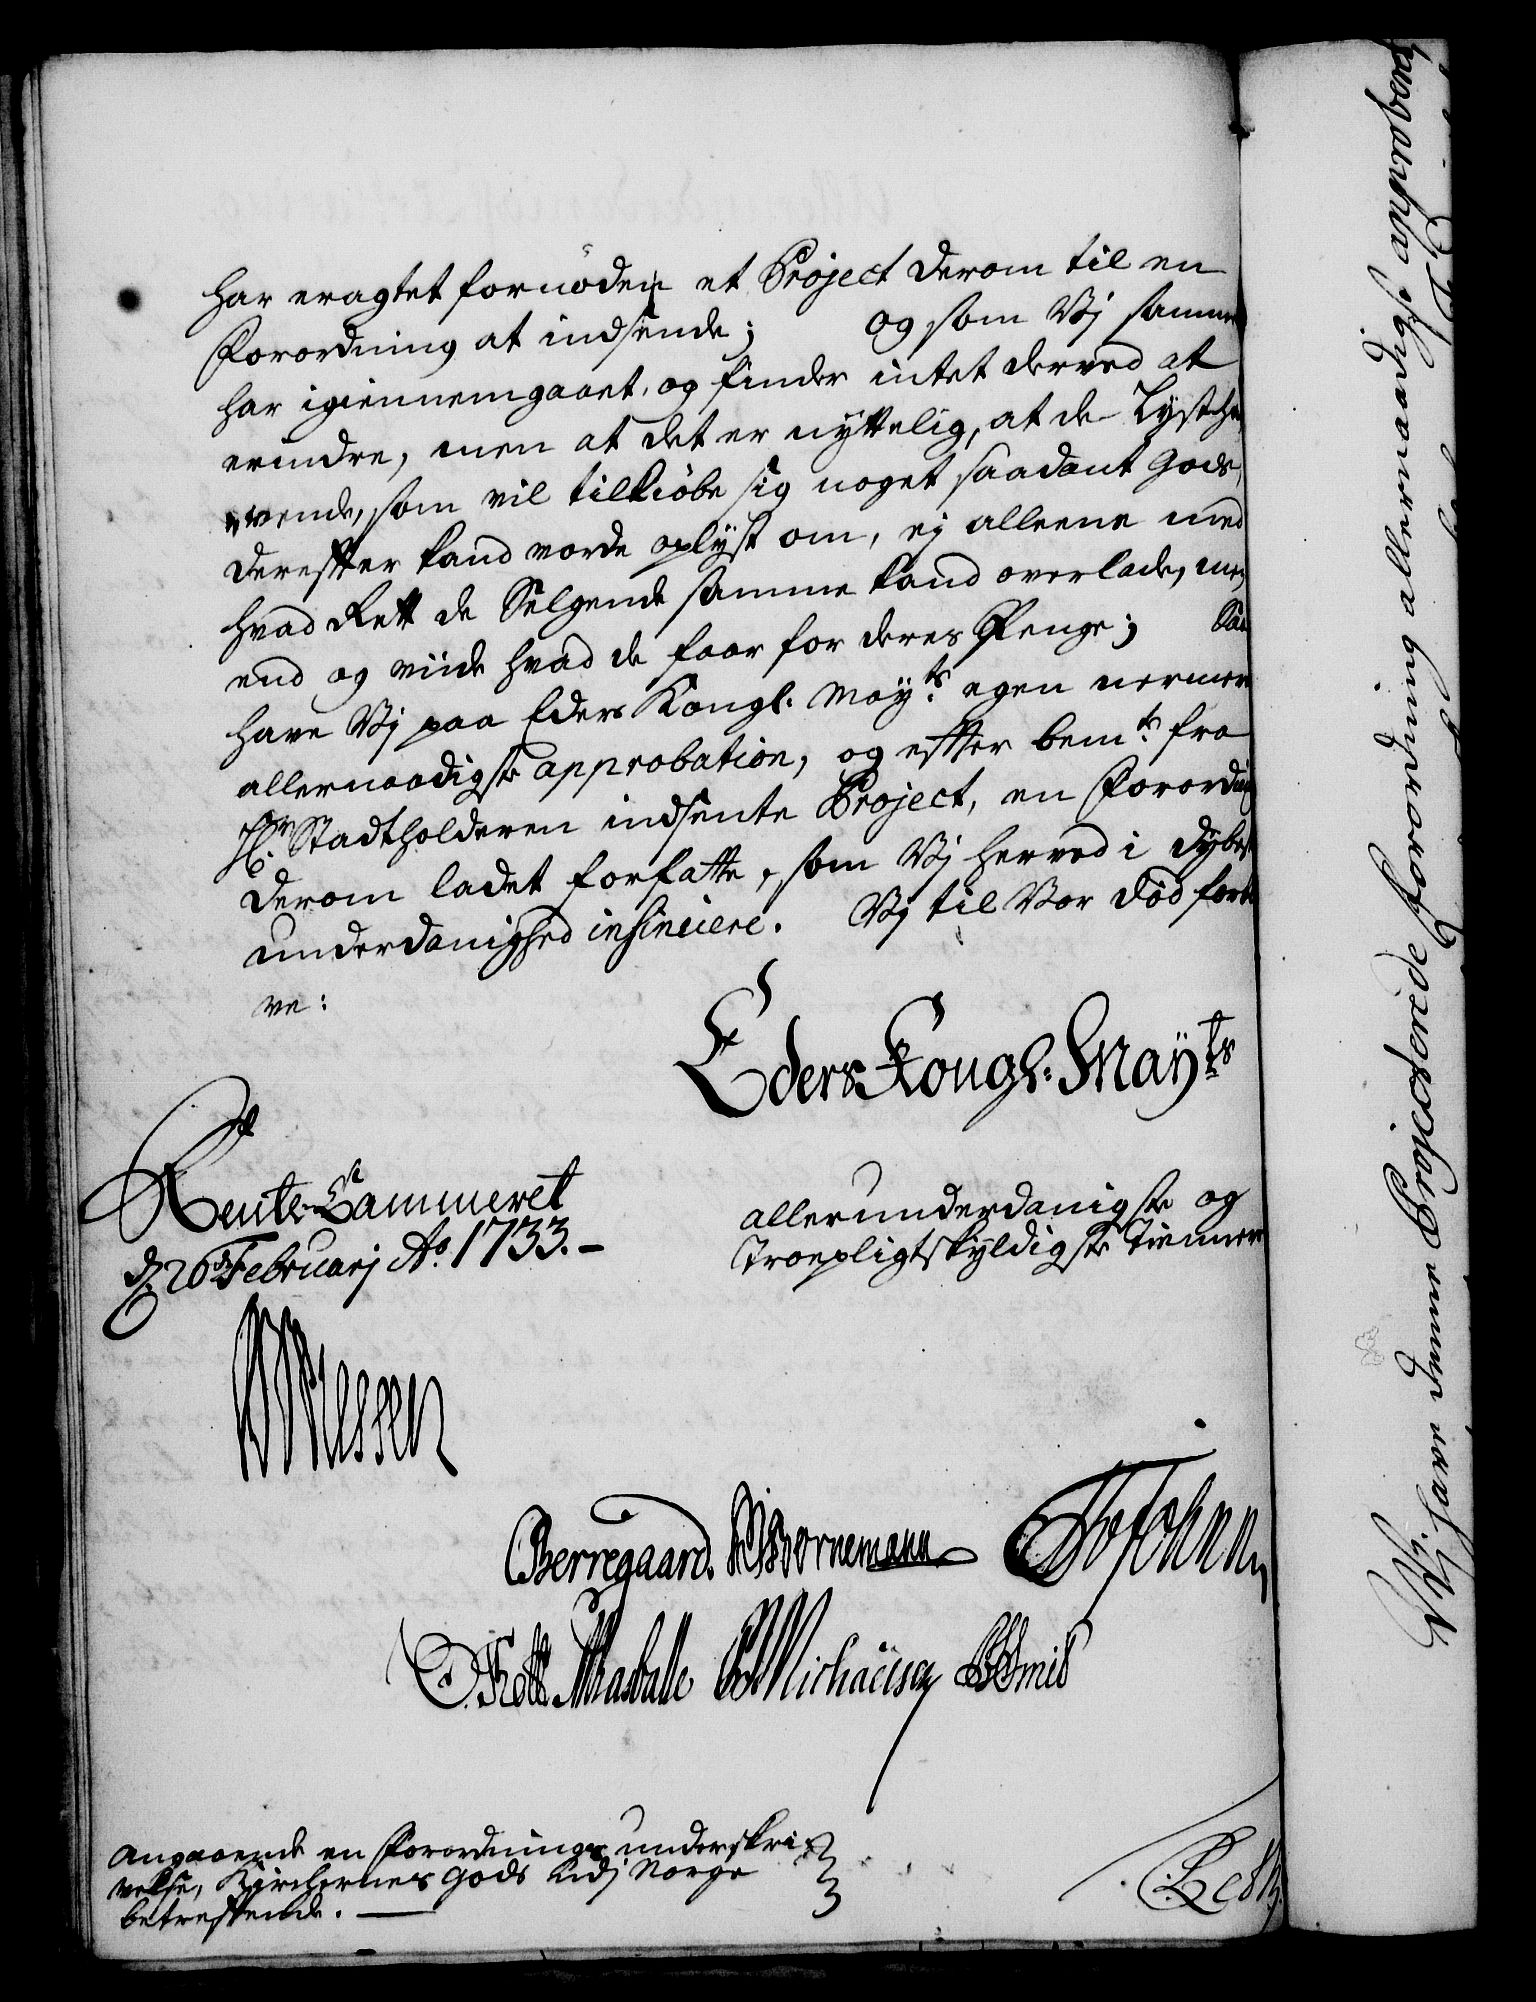 har eragtet fornøden et Project derom til en
Forordning at indsende; og som Vj samme
har igiennemgaaet, og finder intet derved at
erindre, men at det er nyttelig, at de Lystha
vende, som vil tilkiøbe sig noget saadant Gods,
derefter kand vorde oplyst om, ej alleene med
hvad Rett de Selgende samme kand overlade, men
end og viide hvad de faar for deres Penge; Saa
have Vj paa Eders Kongl. Mayts egen nermere
allernaadigste approbation, og effter bemte fra
Hr Stadtholderen indsente Project, en Forordning
derom ladet forfatte, som Vj herved i dybeste
underdanighed insinuere. Vj til Vor död forbli
ve:
Eders Kongl. Mayts
Rente-Cammeret
d. 26 Februarj Ao. 1733.
allerunderdanigste og
Troepligtskyldigste Tienere
Berregaard. Bornemann
Michaelsen
Angaaende en Forordnings underskri
velse, Kirchernes Gods udj Norge
betreffende.
Vj have denne Projecterede Forordning allernaadigst approberet